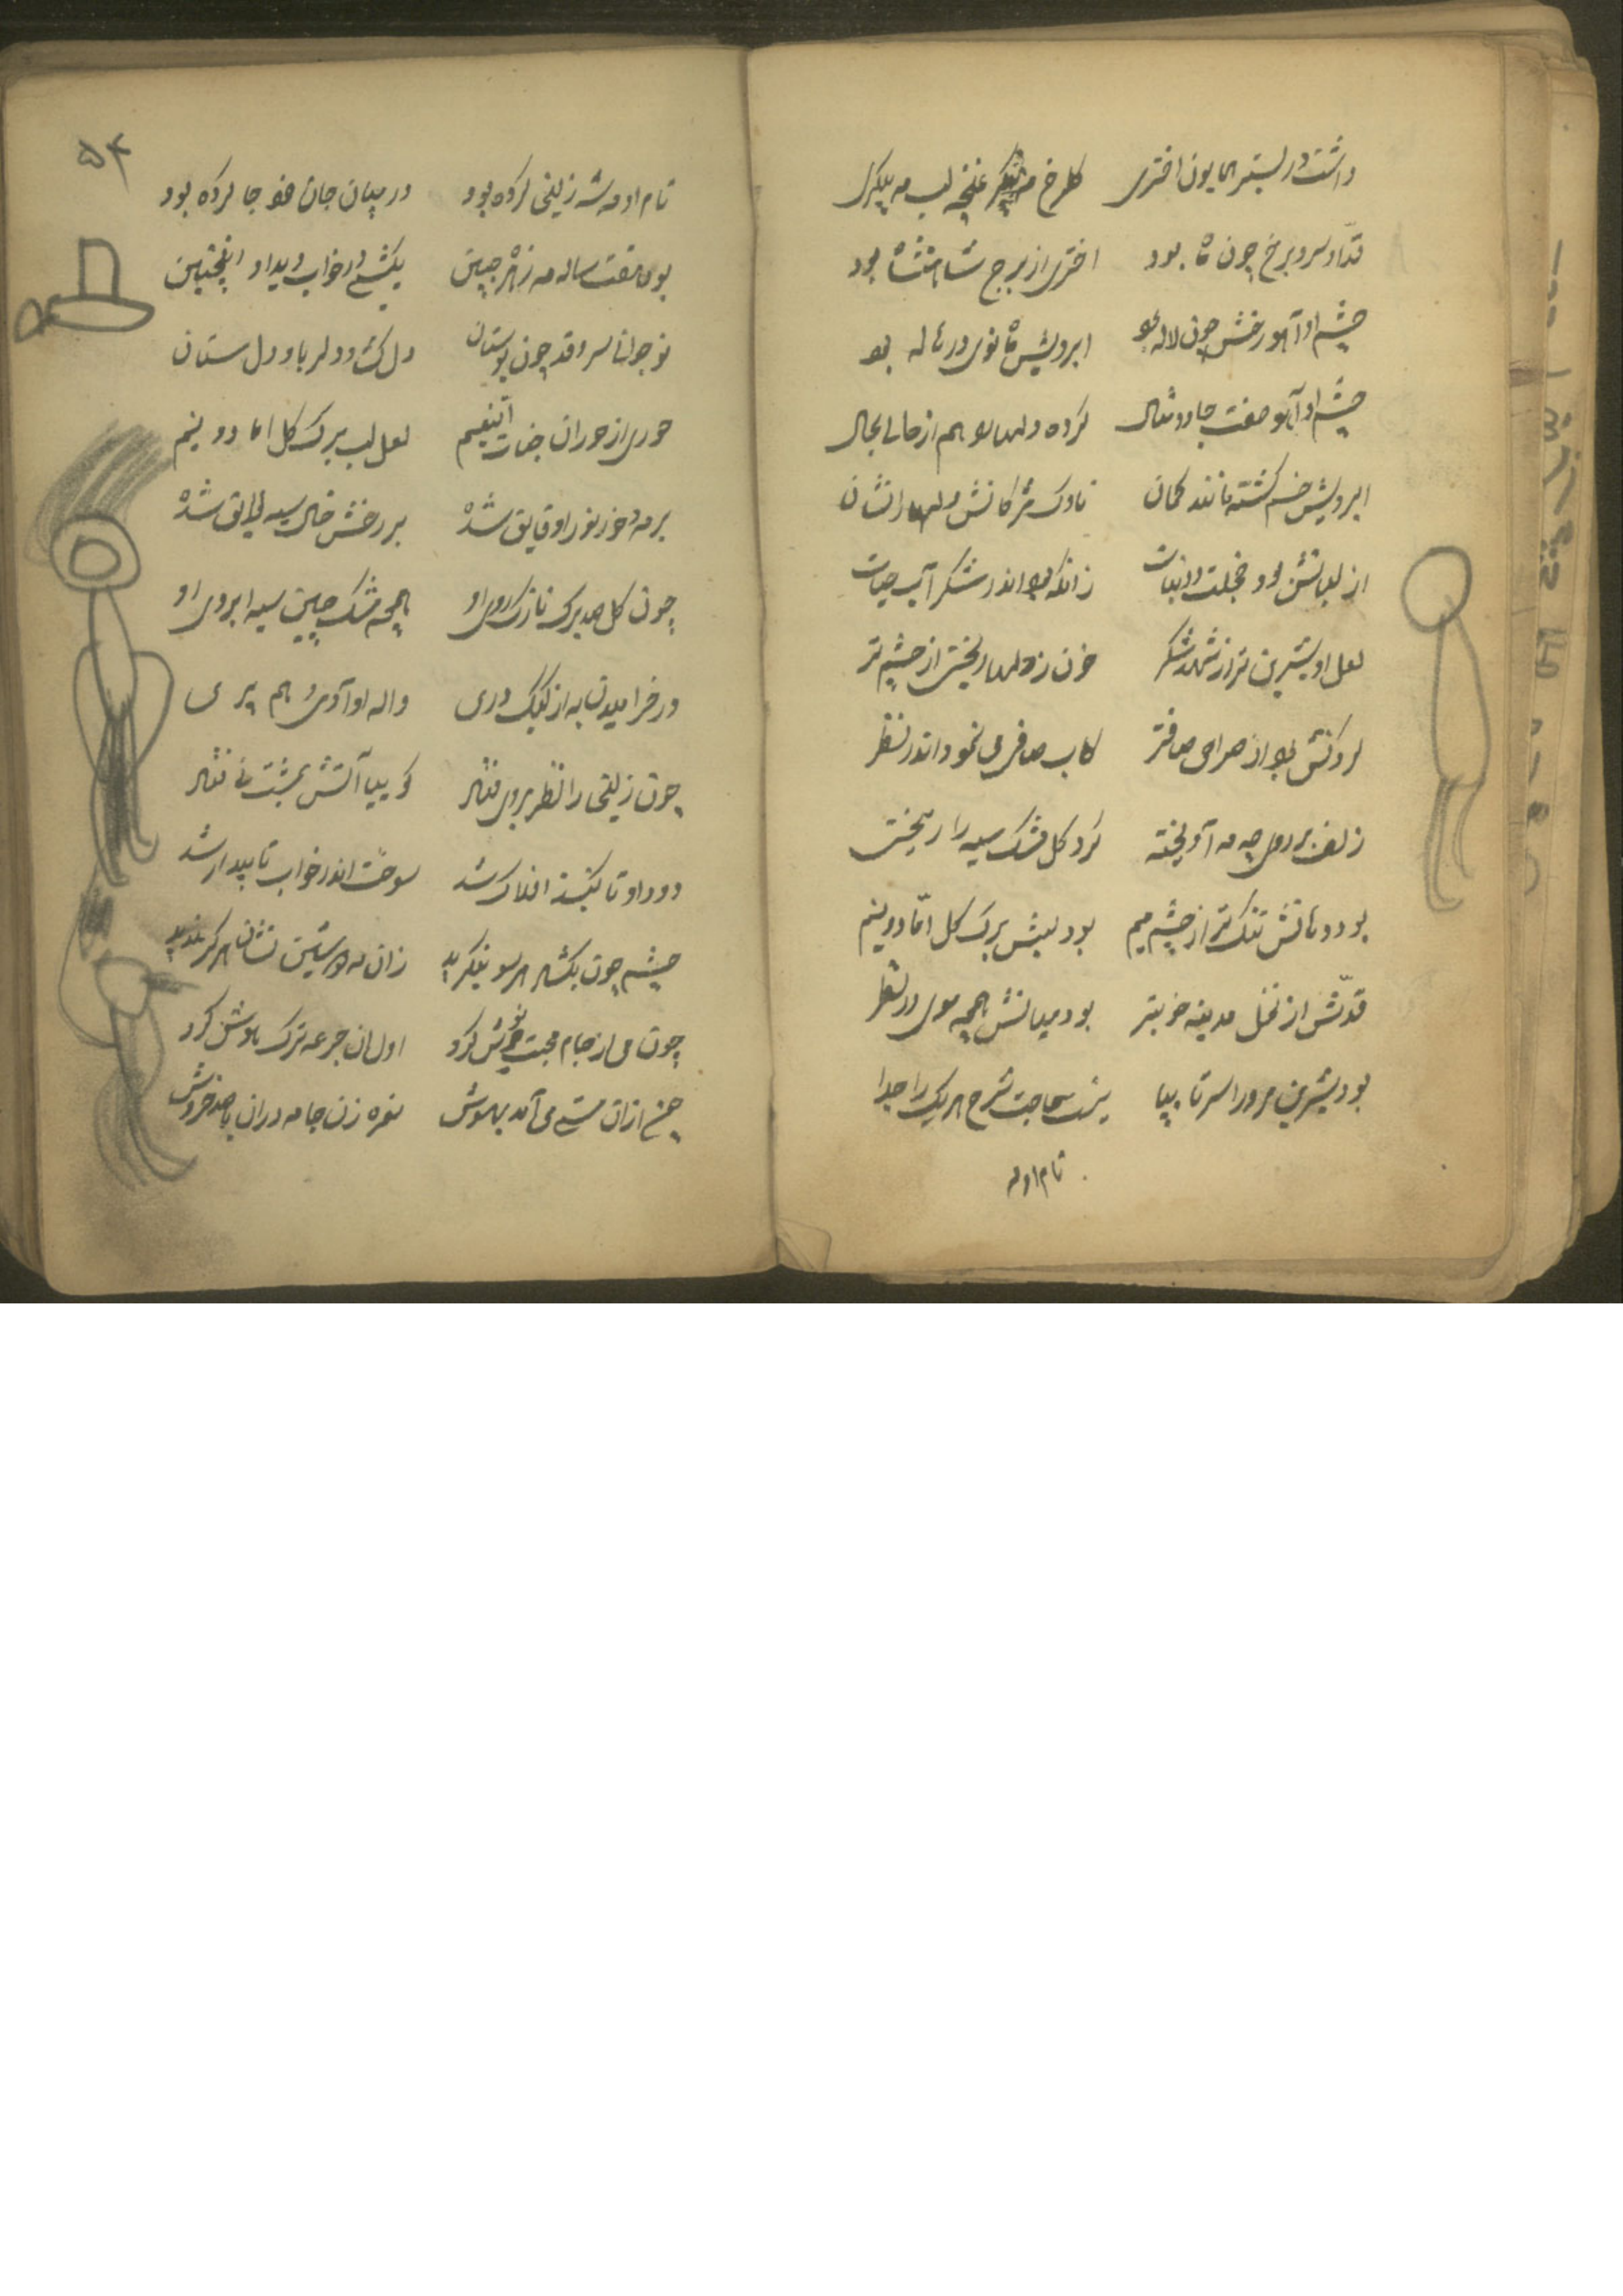 داشت در بستر همایون اختری گلرخ غنچه لب مه پیکری
قد او سرو و برخ چون ماه بود اختری از برج شاهنشاه بود
چشم او آهو رخش چون لاله بود ابرویش ماه نوی در هاله بود
چشم او آهو صفت جادو مثال کرده دلها را هم از حالی بحال
ابرویش خم گشته مانند کمان ناوک مژگانش دلها را نشان
از لبانش در خجلت نبات زانکه بود اندر شکر آب حیات
لعل او شیرین تر از شهد و شکر خون ز دلها ریخت از چشم تر
گردنش بود از صراحی صافتر کاب صافی می نمود اندر نظر
زلف بر روی چه مه آویخته گرد گل مشک سیه را ریخته
بود دهانش تنگ تر از چشم میم بود لبش برگ گل اما دو نیم
قدش از نخل مدینه خوبتر بود میانش همچه موی در نظر
بود شیرین مرورا سر تا بپا نیست حاجت شرح هر یک را جدا
نام او مه
۵۴
نام او مه شه زلیخی کرده بود در میان جان خود جا کرده بود
بود هفت ساله مه زهره جبین یکشبی در خواب دید او اینچنین
نوجوانا سرو قد چون بوستان دلکش و دلربا و دل ستان
حوری از حوران جنات النعیم لعل لب برگ گل اما دو نیم
بر مه و خور نور او فایق شده بر رخش خال سیه لایق شده
چون گل صد برگ نازک روی او همچه مشک چین سیه ابروی او
در خرامیدن به از کبک دری واله او آدمی و هم پری
چون زلیخی را نظر بروی فتاد گوییا آتش به پشت نی فتاد
دود او تا گنبد افلاک شد سوخت اندر خواب تا بیدار شد
چشم چون بگشاد هر سو بنگرید زان مه دوشین نشان هرگز ندید
چون می از جام محبت نوش کرد اول ان جرعه ترک هوش کرد
چند از ان مستی می آمد بهوش نعره زن جامه دران با صد خروش